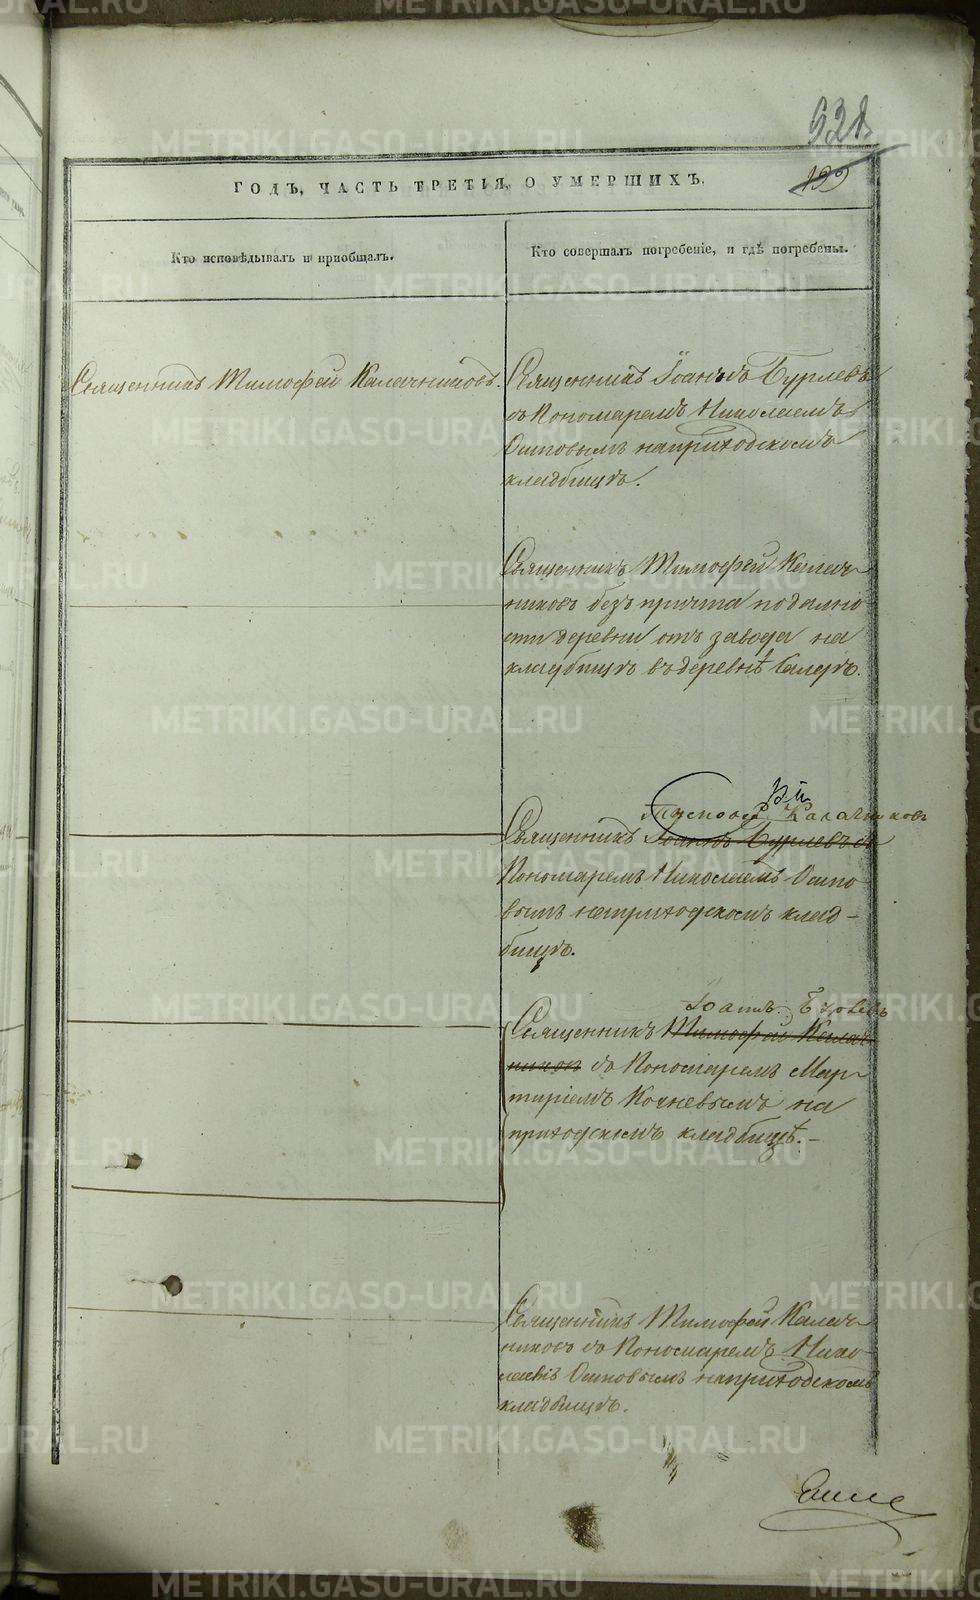 199
ГОДЪ, ЧАСТЬ ТРЕТІЯ, О УМЕРШИХЪ.
Кто исповѣдывалъ и пріобщалъ.
Кто совершалъ погребеніе, и гдѣ погребены.
Священникъ Тимофей Калачниковъ.
Священникъ Іоаннъ Бурлевъ
съ Пономаремъ Николаемъ
Осиповымъ на приходскомъ
кладбищѣ.
Священникъ Тимофей Калач-
никовъ безъ причта по дално
сти деревни отъ завода на
кладбищѣ въ деревнѣ
Тимофей Калачниковъ
Священникъ Іоаннъ Бурлевъ съ
Пономаремъ Николаемъ Осипо
вымъ на приходскомъ клад-
бищѣ.
Іоаннъ
Священникъ Тимофей Калач
никовъ съ Пономаремъ Мар-
тиріемъ Кочневымъ на
приходскомъ кладбищѣ.-
Священникъ Тимофей Калач-
никовъ съ Пономаремъ Нико-
лаемъ Осиповымъ на приходскомъ
кладбищѣ.
METRIKI.GASO-URAL.RU